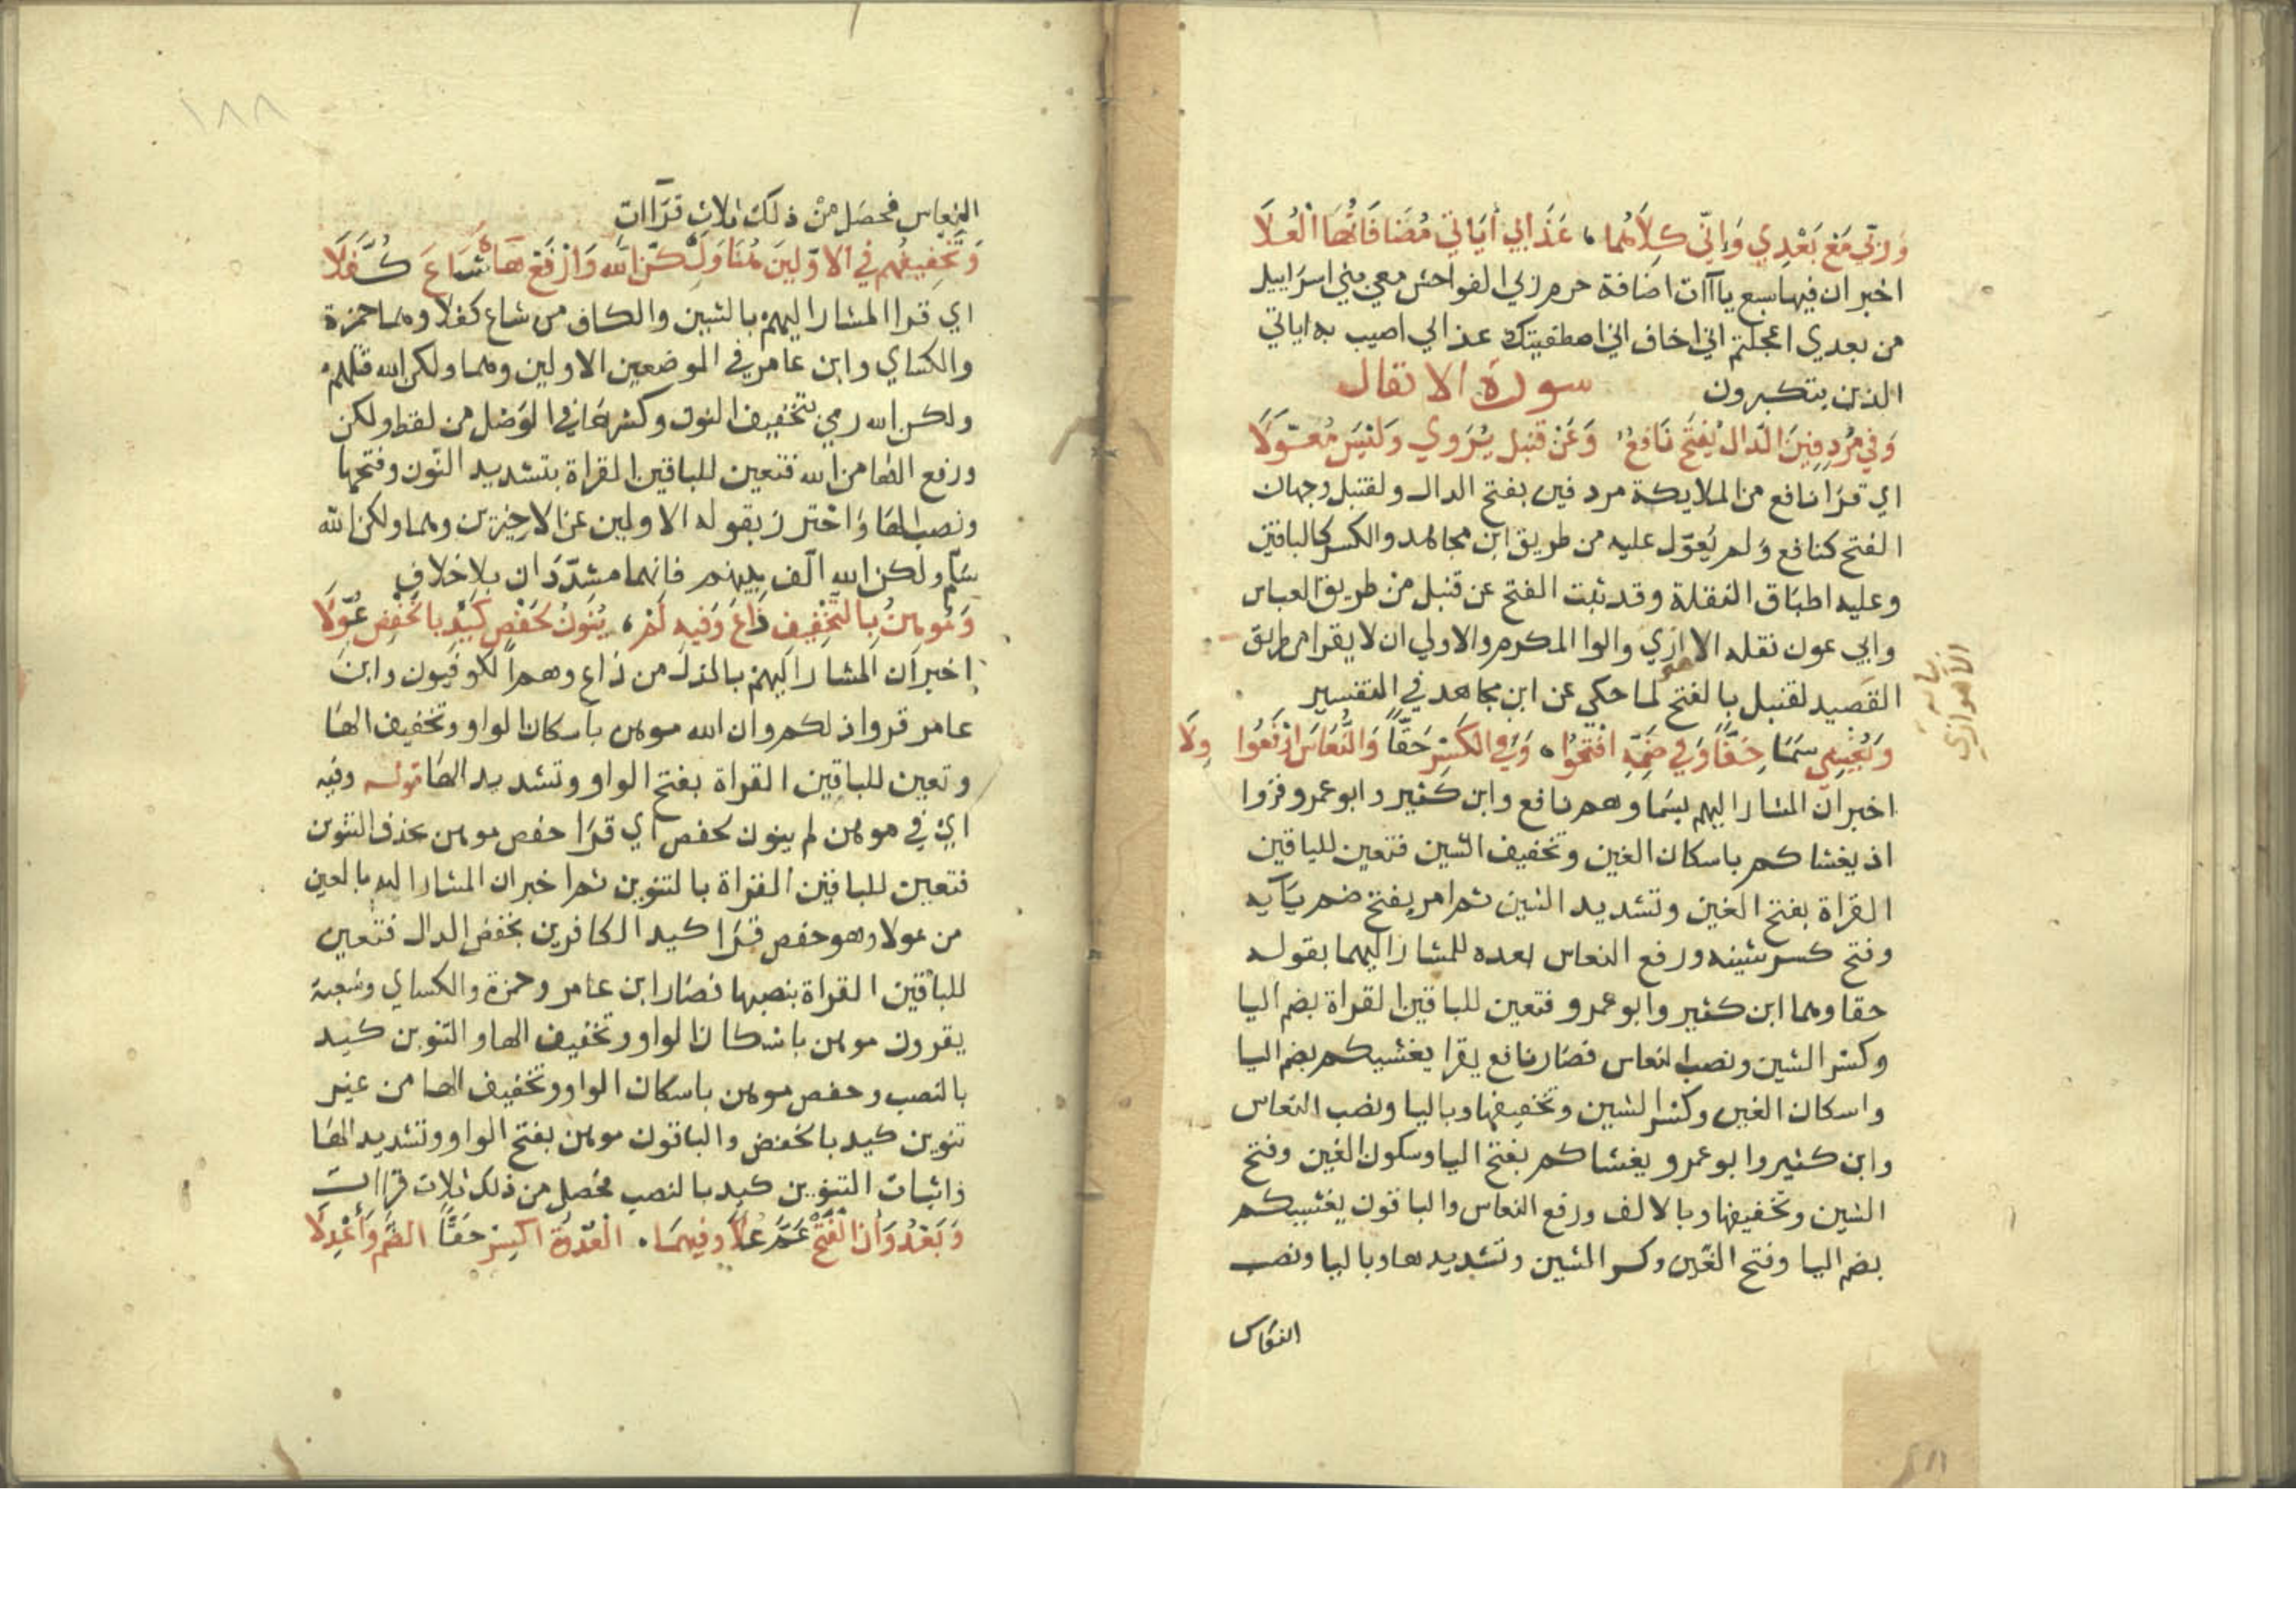 وَرَبِّي مَعْ بَعْدِي وَإِنِّي كِلَاهُمَا ، عَذَابِي أَيَاتِي مُضَافَاتُهَا الْعُلَا
اخبر ان فيها سبع ياآت اضافة حرم ربي الفواحش معي بني اسراييل
من بعدي اعجلتم اني اخاف اني اصطفيتك عذابي اصيب به اياتي
الذين يتكبرون سورة الانفال
وَفِي مُرْدِفِينَ الدَّالَ يَفْتَحُ نَافِعٌ وَعَنْ قُنْبُلٍ يُرْوَي وَلَيْسَ مُعَوَّلَا
اي قرا نافع من الملايكة مردفين بفتح الدال ولقنبل وجهان
الفتح كنافع ولم يُعوّل عليه من طريق ابن مجاهد والكسر كالباقين
وعليه اطباق النقلة وقد ثبت الفتح عن قنبل من طريق العباس
وابي عون نقله الاازي والوا المكرم والاولي ان لا يقرا من طريق
القصيد لقنبل بالفتح لما حكي عن ابن مجاهد في التفسير
الأهوازي
وَيُغْشِي سَمَا خِفًّا وَفِي ضَمِّهِ افْتَحُوا ، وَفِي الكَسْرِ حَقًّا وَالنُّعَاسَ ارْفَعُوا وِلَا
اخبر ان المشار اليهم بسما وهم نافع وابن كثير وابو عمرو قروا
اذ يغشاكم باسكان الغين وتخفيف الشين فتعين للباقين
القراة بفتح الغين وتشديد الشين ثم امر بفتح ضم يآيه
وفتح كسر شينه ورفع النعاس بعده للمشار اليهما بقوله
حقا وهما ابن كثير وابو عمرو فتعين للباقين القراة بضم اليا
وكسر الشين ونصب النعاس فصار نافع يقرا يغشيكم بضم اليا
واسكان الغين وكسر الشين وتخفيفها وباليا ونصب النعاس
وابن كثير وابو عمرو يغشاكم بفتح اليا وسكون الغين وفتح
الشين وتخفيفها وبالالف ورفع النعاس والباقون يغشييكم
بضم اليا وفتح الغين وكسر الشين وتشديدها وباليا ونصب
النعاس
١٨٨
النعاس فحصل من ذلك ثلاث قراات
وَتَخْفِيفُهُم فِي الاوَّلِينَ هُنَا وَلَكِنِ اللهُ وَارْفَعْ هَاءَهُ شَاعَ كُفَّلَا
اي قرا المشار اليهم بالشين والكاف من شاع كفلا وهما حمزة
والكساي وابن عامر في الموضعين الاولين وهما ولكن الله قتلهم
ولكن الله رمي بتخفيف النون وكسرها في الوصل من لفظ ولكن
ورفع الها من الله فتعين للباقين القراة بتشديد النون وفتحها
ونصب الها واحترز بقوله الاولين عن الاخيرين وهما ولكن الله
سلّم ولكن الله الّف بينهم فانهما مشدّدان بلا خلاف
وَمُوهِنُ بِالتَّخْفِيفِ ذَاعَ وَفِيهِ لَمْ ، يُنَوَّنْ لِحَفْصٍ كَيْدِ بِالخَفْضِ عُوِّلَا
اخبر ان المشار اليهم بالذال من ذاع وهم الكوفيون وابن
عامر قروا ذلكم وان الله موهن باسكان الواو وتخفيف الها
وتعين للباقين القراة بفتح الواو وتشديد الها قوله وفيه
اي في موهن لم ينون لحفص اي قرا حفص موهن بحذف التنوين
فتعين للباقين القراة بالتنوين ثم اخبر ان المشار اليه بالعين
من عولا وهو حفص قرا كيد الكافرين بخفض الدال فتعين
للباقين القراة بنصبها فصار ابن عامر وحمزة والكساي وشعبة
يقرون موهن باسكان الواو وتخفيف الها والتنوين كيد
بالنصب وحفص موهن باسكان الواو وتخفيف الها من غير
تنوين كيد بالخفض والباقون موهن بفتح الواو وتشديد الها
واثبات التنوين كيد بالنصب فحصل من ذلك ثلاث قراات
وَبَعْدُ وَإِنَّ الْفَتْحُ عَمَّ عُلًا وَفِيهِمَا ، الْعُدْوَةِ اكْسِرْ حَقًّا الضَّمَّ وَأَعْدِلَا